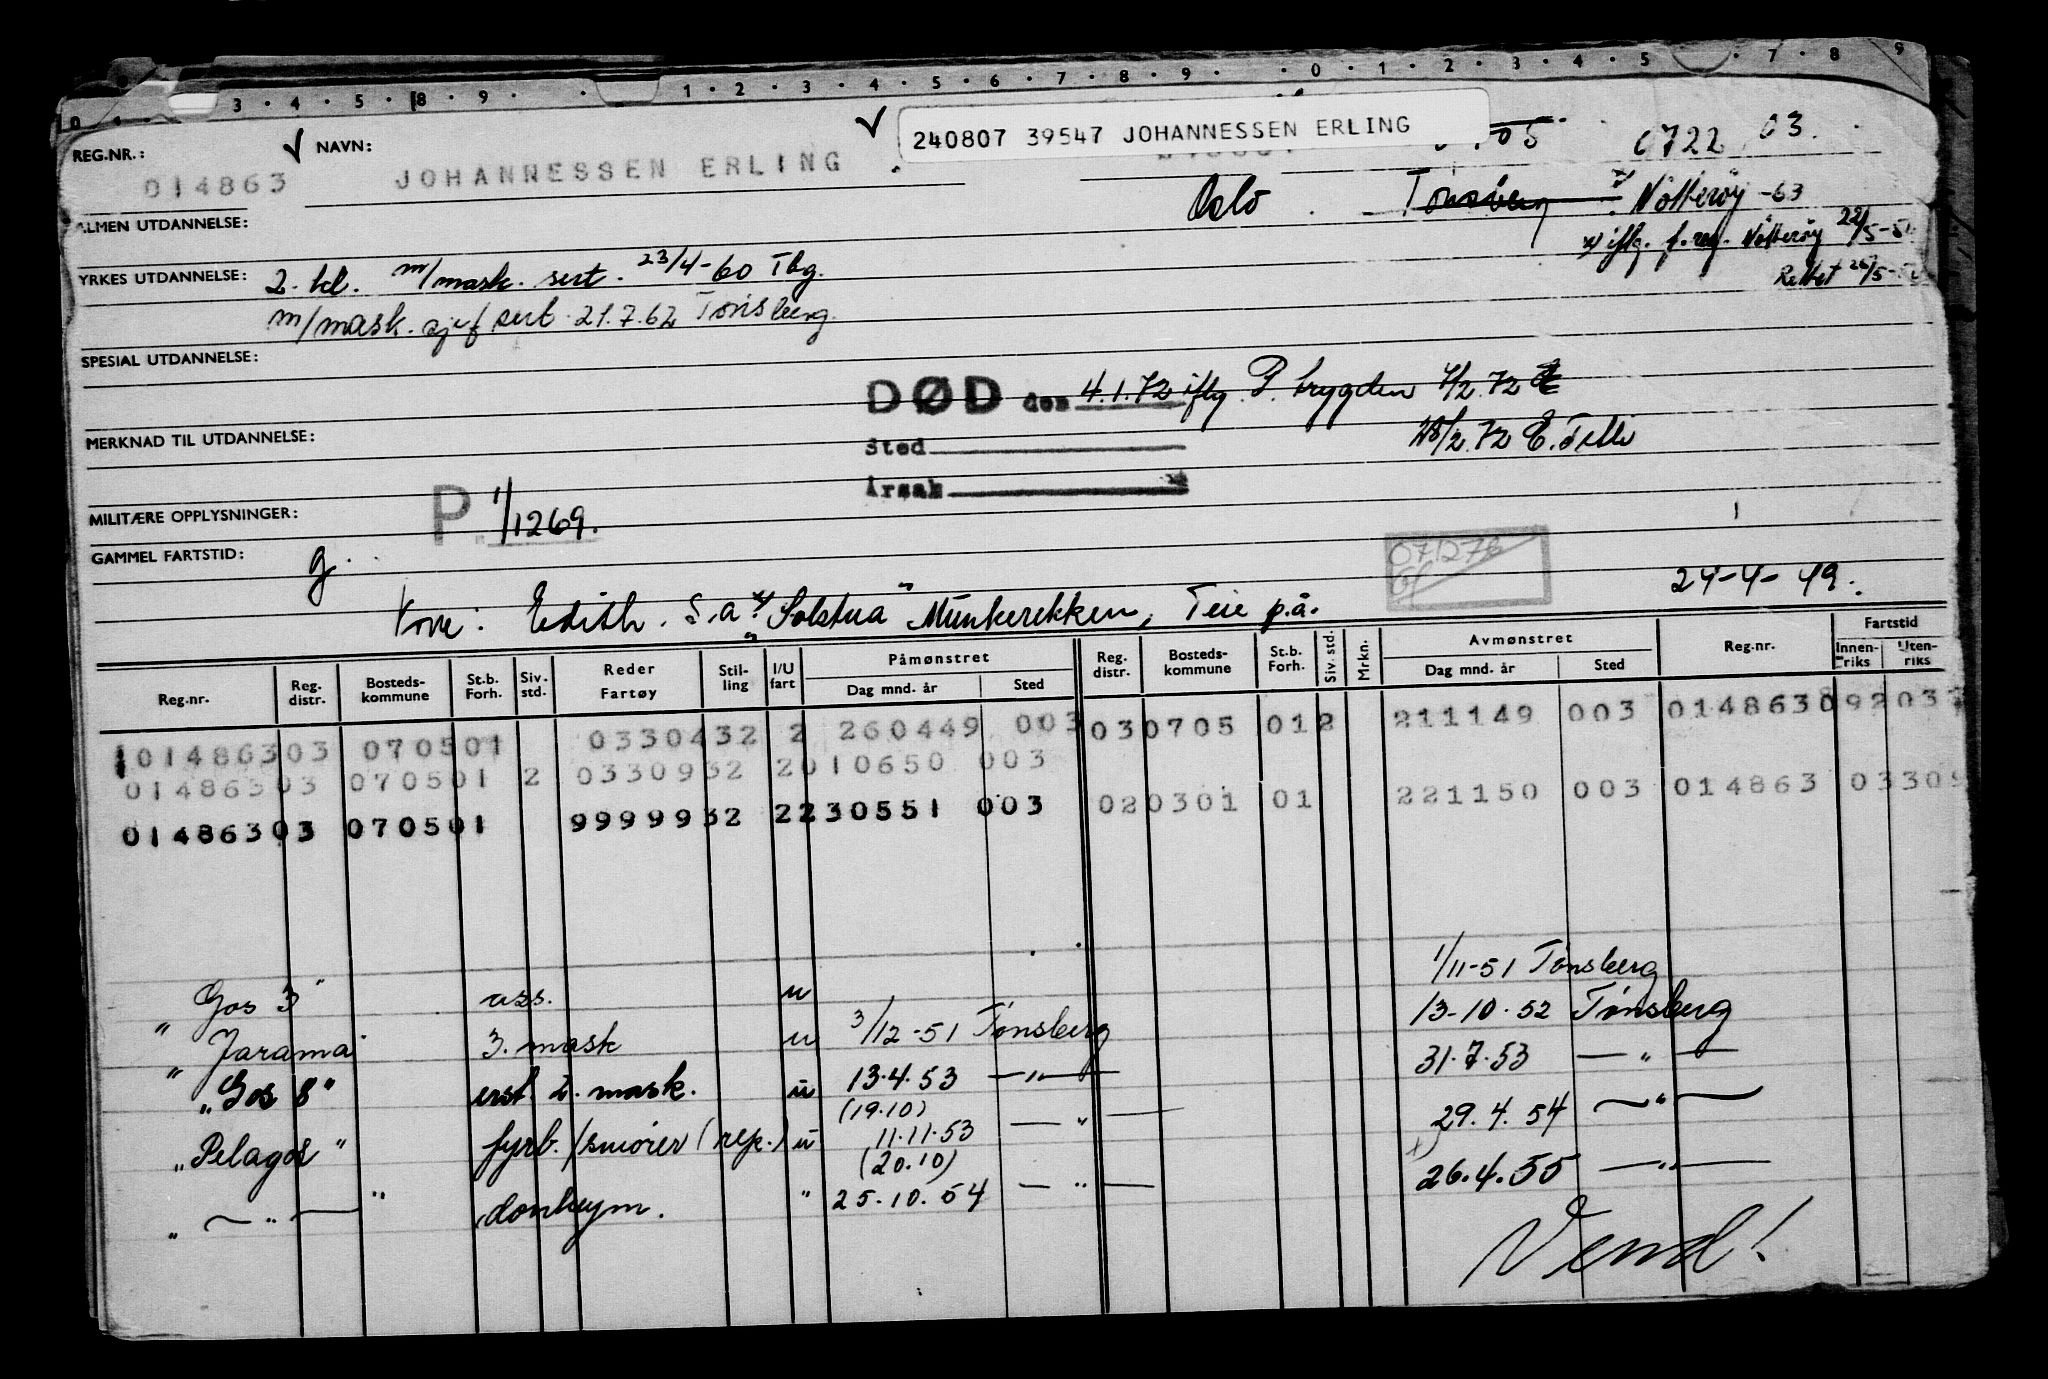 3 · 4 · 5 · 8 · 9 · 1 · 2 · 3 · 4 · 5 · 6 · 7 · 8 · 9 · 0 · 1 · 2 · 3 · 4 · 5 · 7 · 8 · 9
240807 39547 JOHANNESSEN ERLING
REG.NR.: 014863 NAVN: JOHANNESSEN ERLING 05 0722 03.
Oslo Tønsberg x) Nøtterøy -63
ALMEN UTDANNELSE:
x) iflg. f.reg. Nøtterøy 22/5-51
Rettet 26/5-
YRKES UTDANNELSE: 2. kl. m/mask. sert. 23/4-60 Tbg.
m/mask. sjef sert. 21.7.62 Tønsberg.
SPESIAL UTDANNELSE:
DØD den 4.1.72 iflg. P. trygden 7/2.72
MERKNAD TIL UTDANNELSE:
Sted 28/2.72
Årsak
MILITÆRE OPPLYSNINGER: P. 1/1269.
GAMMEL FARTSTID: g.
071276
24-4-49.
Kone: Edith. S.a. "Solstua" Munkerekken, Teie p.å.
Reg.nr. Reg. distr. Bosteds-kommune St.b. Forh. Siv. std. Reder Fartøy Stil-ling I/U fart Påmønstret Dag mnd. år Sted Reg. distr. Bosteds-kommune St.b. Forh. Siv. std. Mrkn. Avmønstret Dag mnd. år Sted Reg.nr. Fartstid Innen-riks Uten-riks
01486303 070501 0330432 2 260449 003 030705 012 211149 003 014863092037
01486303 070501 2 0330932 2010650 003 020301 01 221150 003 014863 03309
01486303 070501 9999932 2230551 003
"Gos 3" ass. u 1/11-51 Tønsberg
"Jarama" 3. mask u 3/12-51 Tønsberg 13-10.52 Tønsberg
"Gos 8" erst. 2. mask. u 13.4.53 — " — 31.7.53 — " —
(19.10)
"Pelagos" fyrb./smører (rep.) u 11.11.53 — " — 29.4.54 — " —
(20.10)
" — " — " donkeym. " 25.10.54 — " — 26.4.55 — " —
Vend!